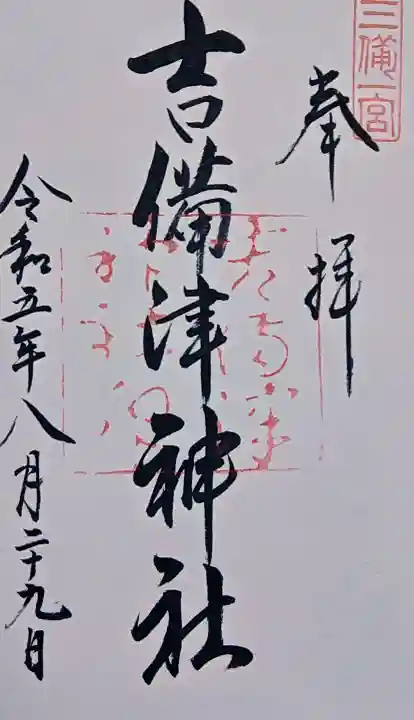 三備一宮
奉拝
吉備津神社
令和五年八月二十九日